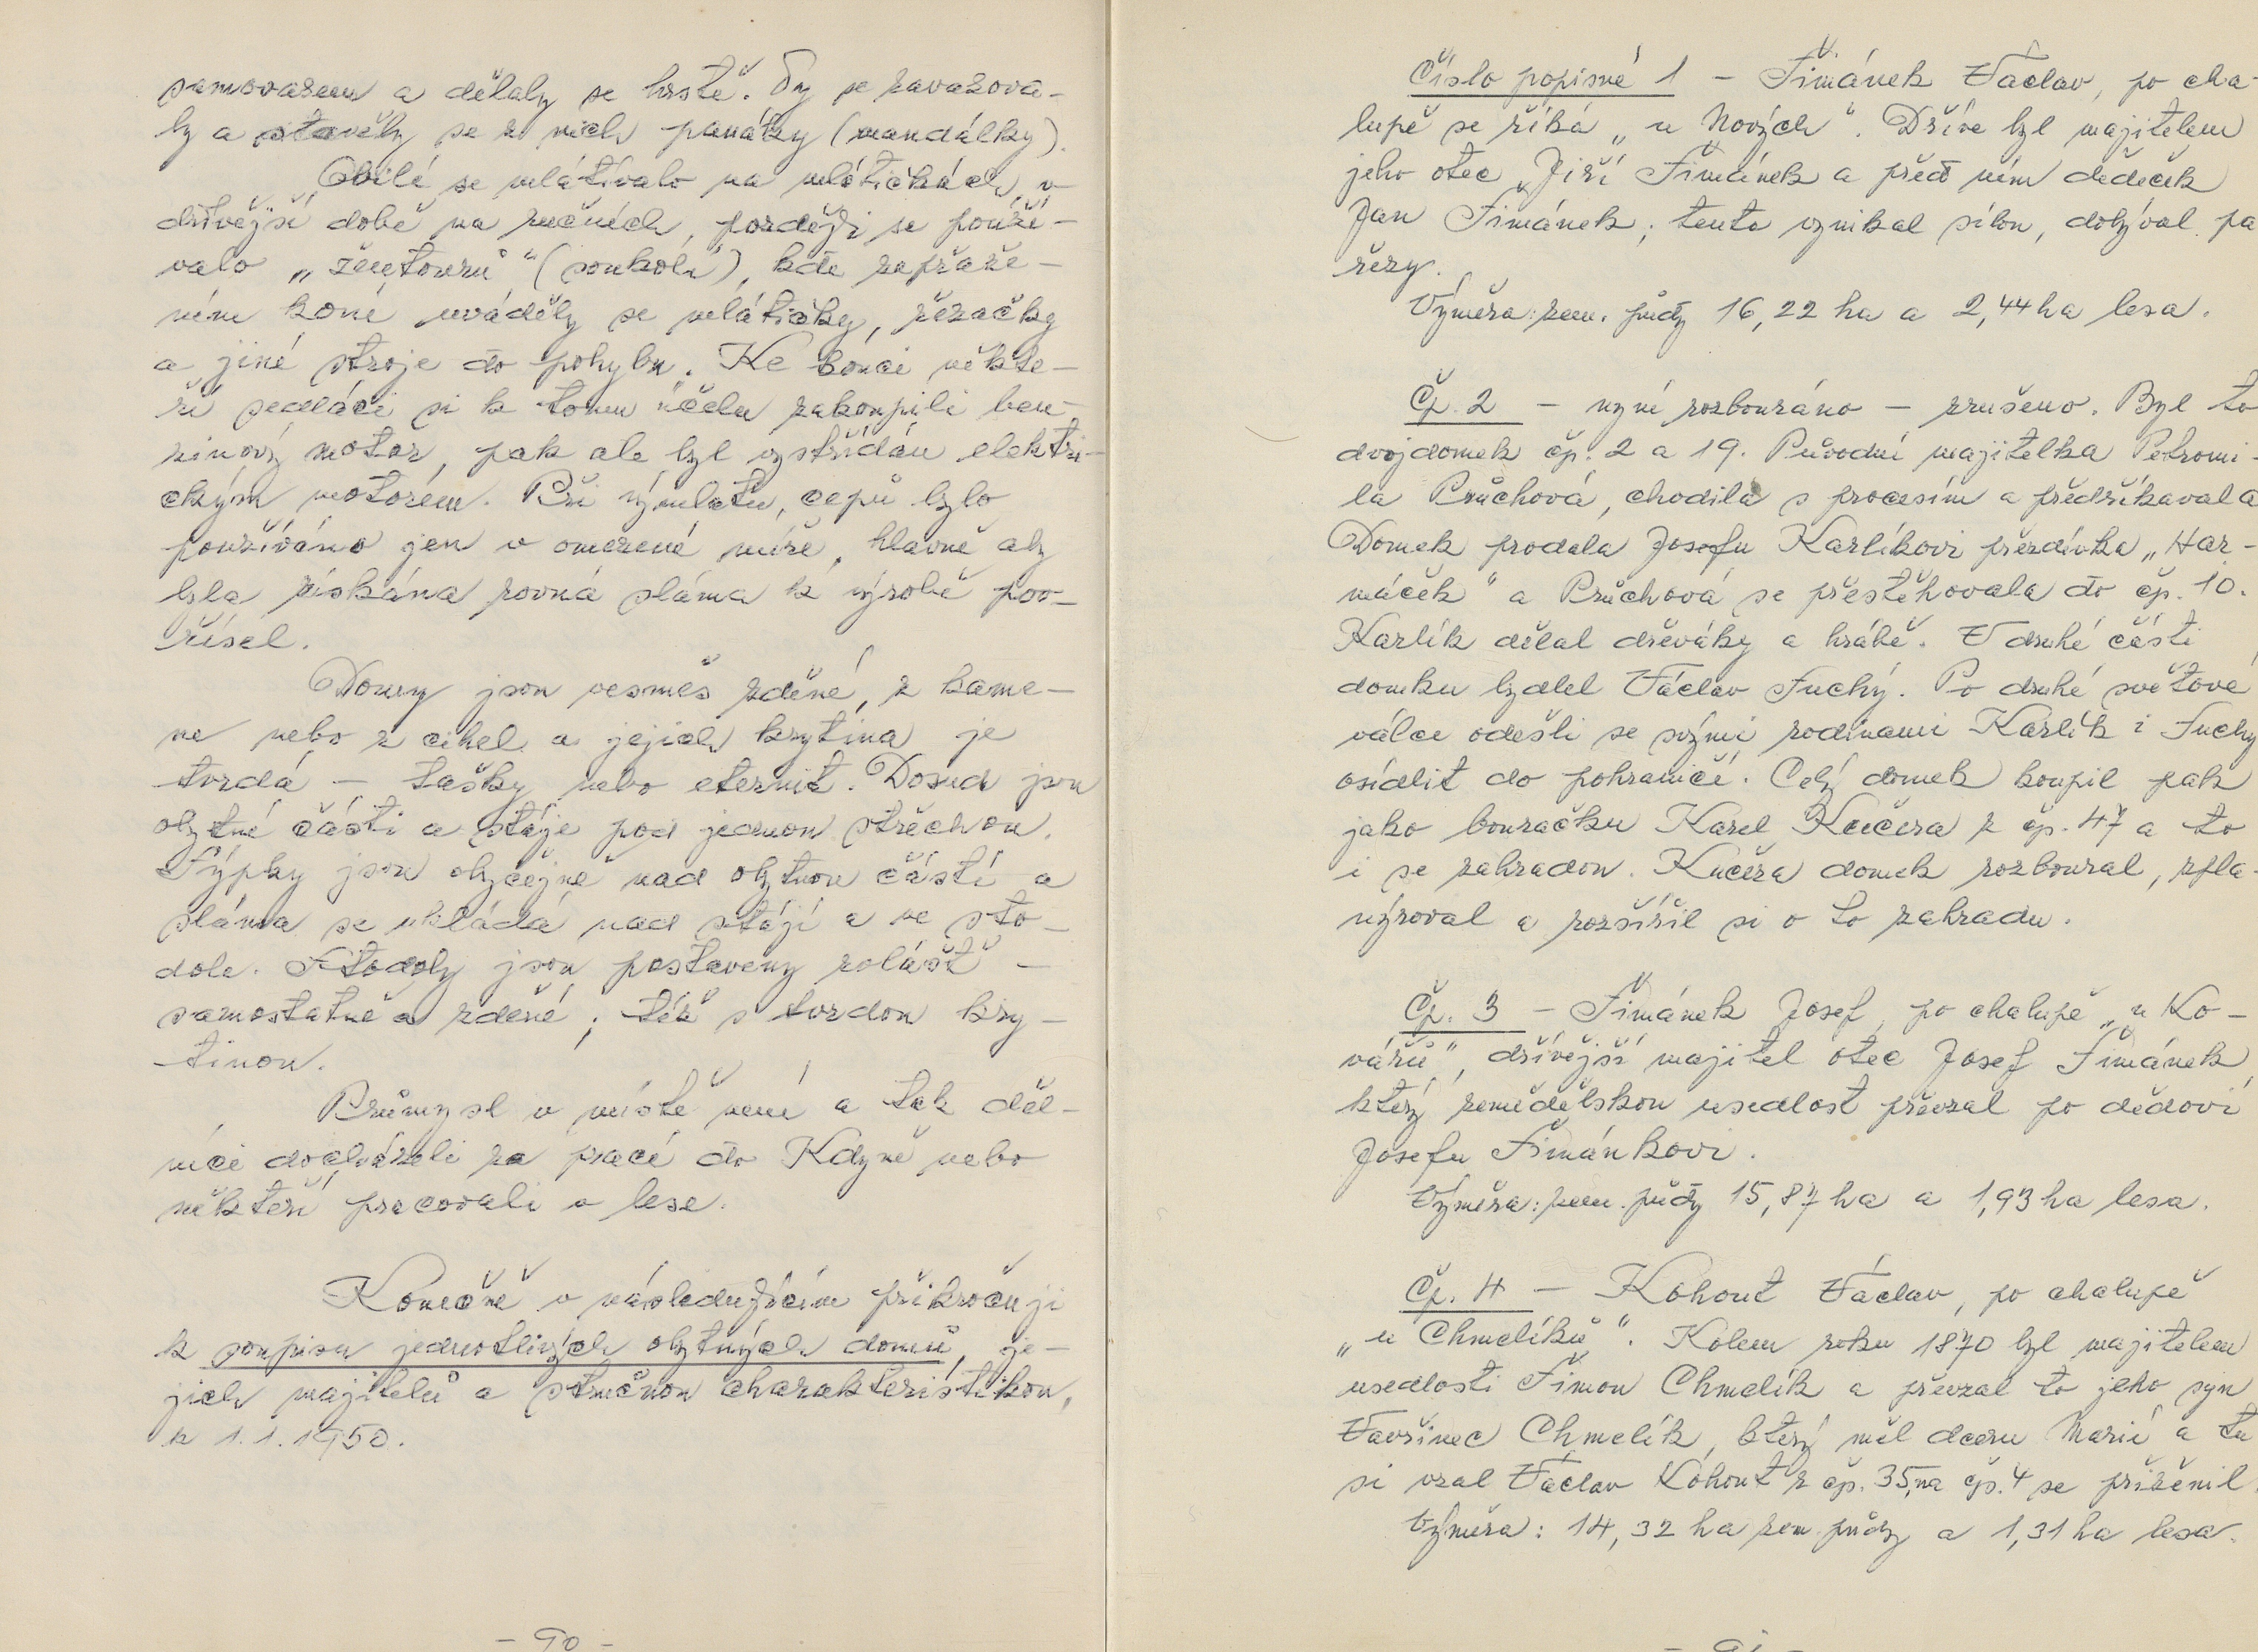 samovazem a dělaly se hrstě. Ty se zavazova-
ly a stavěly se z nich panáky (mandálky).
Obilí se mlátívalo na mlátičkách, v
dřívější době na ručních, později se použí-
valo „žentourů" (soukolí), kde zapřaže-
ním koní uváděly se mlátičky, řezačky
a jiné stroje do pohybu. Ke konci někte-
ří sedláci si k tomu účelu zakoupili ben-
zinový motor, pak ale byl vystřídán elektri-
ckým motorem. Při výmlatu, cepů bylo
používáno jen v omezené míře, hlavně aby
byla získána rovná sláma k výrobě pov-
řísel.
Domy jsou vesměs zděné, z kame-
ne nebo z cihel a jejich krytina je
tvrdá - tašky nebo eternit. Dosud jsou
obytné části a stáje pod jednou střechou.
Sýpky jsou obyčejně nad obytnou částí a
sláma se ukládá nad stájí a ve sto-
dole. Stodoly jsou postaveny zvlášť -
samostatně a zděné; též s tvrdou kry-
tinou.
Průmysl v místě není a tak děl-
níci docházeli za prací do Kdyně nebo
někteří pracovali v lese.
Konečně v následujícím přikročuji
k soupisu jednotlivých obytných domů, je-
jich majitelů a stručnou charakteristikou,
k 1.1.1950.
- 90 -
Číslo popisné 1 - Šimánek Václav, po cha-
lupě se říká „u Nových". Dříve byl majitelem
jeho otec Jiří Šimánek a před ním dědeček
Jan Šimánek; tento vynikal sílou, dobýval pa
řezy.
Výměra: zem. půdy 16,22 ha a 2,44 ha lesa.
Čp. 2 - nyní rozbouráno - zrušeno. Byl to
dvojdomek čp. 2 a 19. Původní majitelka Petromi-
la Průchová, chodila s procesím a předříkavala
Domek prodala Josefu Karlíkovi přezdívka „Har-
máček" a Průchová se přestěhovala do čp. 10.
Karlík dělal dřeváky a hrábě. V druhé části
domku bydlel Václav Suchý. Po druhé světové
válce odešli se svými rodinami Karlík i Suchý
osídlit do pohraničí. Celý domek koupil pak
jako bouračku Karel Kučera z čp. 47 a to
i se zahradou. Kučera domek rozboural, zpla-
nýroval a rozšířil si o to zahradu.
Čp. 3 - Šimánek Josef, po chalupě „u Ko-
vářů", dřívější majitel otec Josef Šimánek,
který zemědělskou usedlost převzal po dědovi
Josefu Šimánkovi.
Výměra: zem. půdy 15,87 ha a 1,93 ha lesa.
Čp. 4 - Kohout Václav, po chalupě
„u Chmelíků". Kolem roku 1870 byl majitelem
usedlosti Šimon Chmelík a převzal to jeho syn
Vavřinec Chmelík, který měl dceru Marii a tu
si vzal Václav Kohout z čp. 35, na čp. 4 se přiženil.
Výměra: 14,32 ha zem půdy a 1,31 ha lesa.
- 91 -